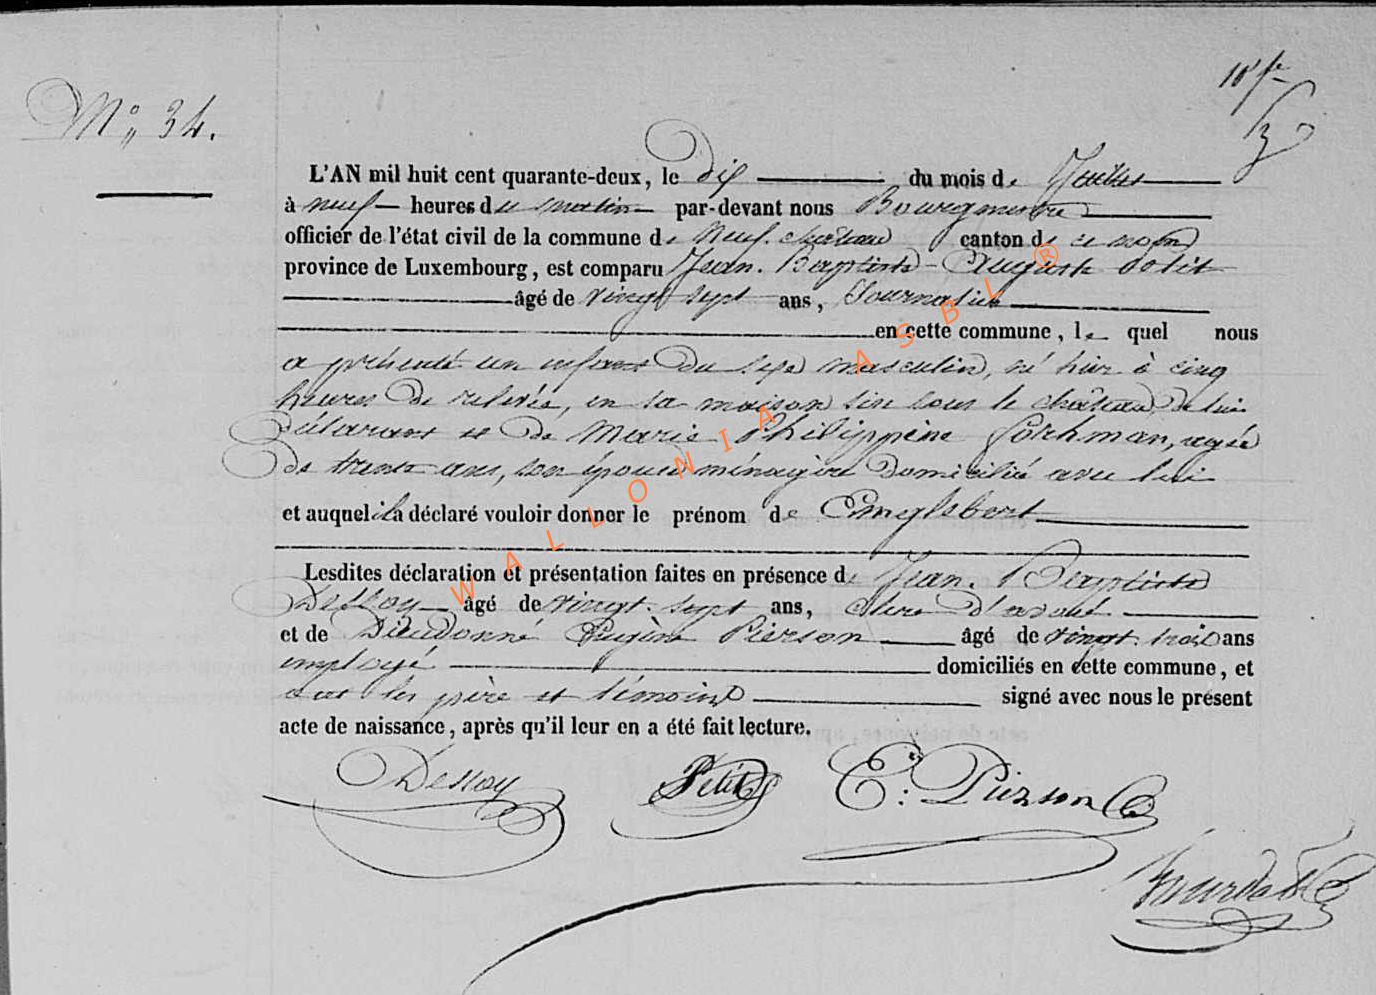 N° 34.
L'AN mil huit cent quarante-deux, le dix du mois de Juillet
à neuf heures du matin par-devant nous Bourgmestre
officier de l'état civil de la commune de Neufchateau canton de ce nom
province de Luxembourg, est comparu Jean Baptiste Auguste Petit
âgé de vingt sept ans, Journalier
en cette commune, lequel nous
a présenté un enfant du sexe masculin, né hier à cinq
heures de relevée, en sa maison sise sous le château, de lui
déclarant et de Marie Philippine agée
de trente ans, son épouse ménagère domiciliée avec lui
et auquel il a déclaré vouloir donner le prénom de Englebert
Lesdites déclaration et présentation faites en présence de Jean Baptiste
Dessoy âgé de vingt sept ans, clerc d'avoué
et de Dieudonné Eugène Pierson âgé de vingt trois ans
employé domiciliés en cette commune, et
ont les père et témoins signé avec nous le présent
acte de naissance, après qu'il leur en a été fait lecture.
Dessoy Petit E: Pierson
WALLONIA ASBL ®